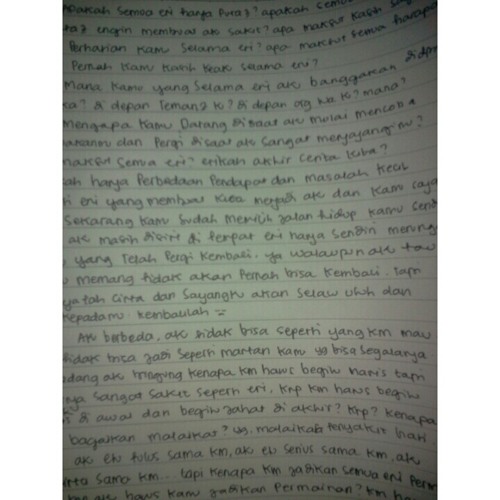 apakah semua eri hanya Pura2? apakah semua
ta2 engin membuat ak sakit? apa maksud kasih
Perhatian kamu selama eri? apa maksud semua harapan
Pernah kamu kasih keak selama eri?
Mana kamu yang selama eri ak banggakan didpn
? di depan teman2 k? di depan org k? mana?
mengapa kamu Datang disaat ak mulai mencoba
dan Pergi disaat ak sangat menyayangimu?
maksud semua eri? enikah akhir cerita kita?
ah hanya Perbedaan Pendapat dan masalah kecil
i eni yang membuat kita menjadi ak dan kamu saja
Sekarang kamu sudah memilih jalan hidup kamu sendi
ak masih disini di tempat eri hanya sendiri merung
yang Telah Pergi kembali. ya walaupun ak tau
memang tidak akan Pernah bisa kembali. tapi
yatah cinta dan sayangku akan selalu utuh dan
kepadamu. kembalilah =
Ak berbeda, ak tidak bisa seperti yang km mau
tidak bisa jadi seperti mantan kamu yg bisa segalanya
dang ak bingung kenapa km harus begitu manis tapi
nya sangat sakit seperti eri, knp km harus begitu
s di awal dan begitu jahat di akhir? knp? kenapa
bagaikan malaikat? yg, malaikat penyakit hati
ak eu tulus sama km, ak eu serius sama km, ak
inta sama km... tapi kenapa km jadikan semua eri Perm
ak harus kamu jadikan Permainan? km